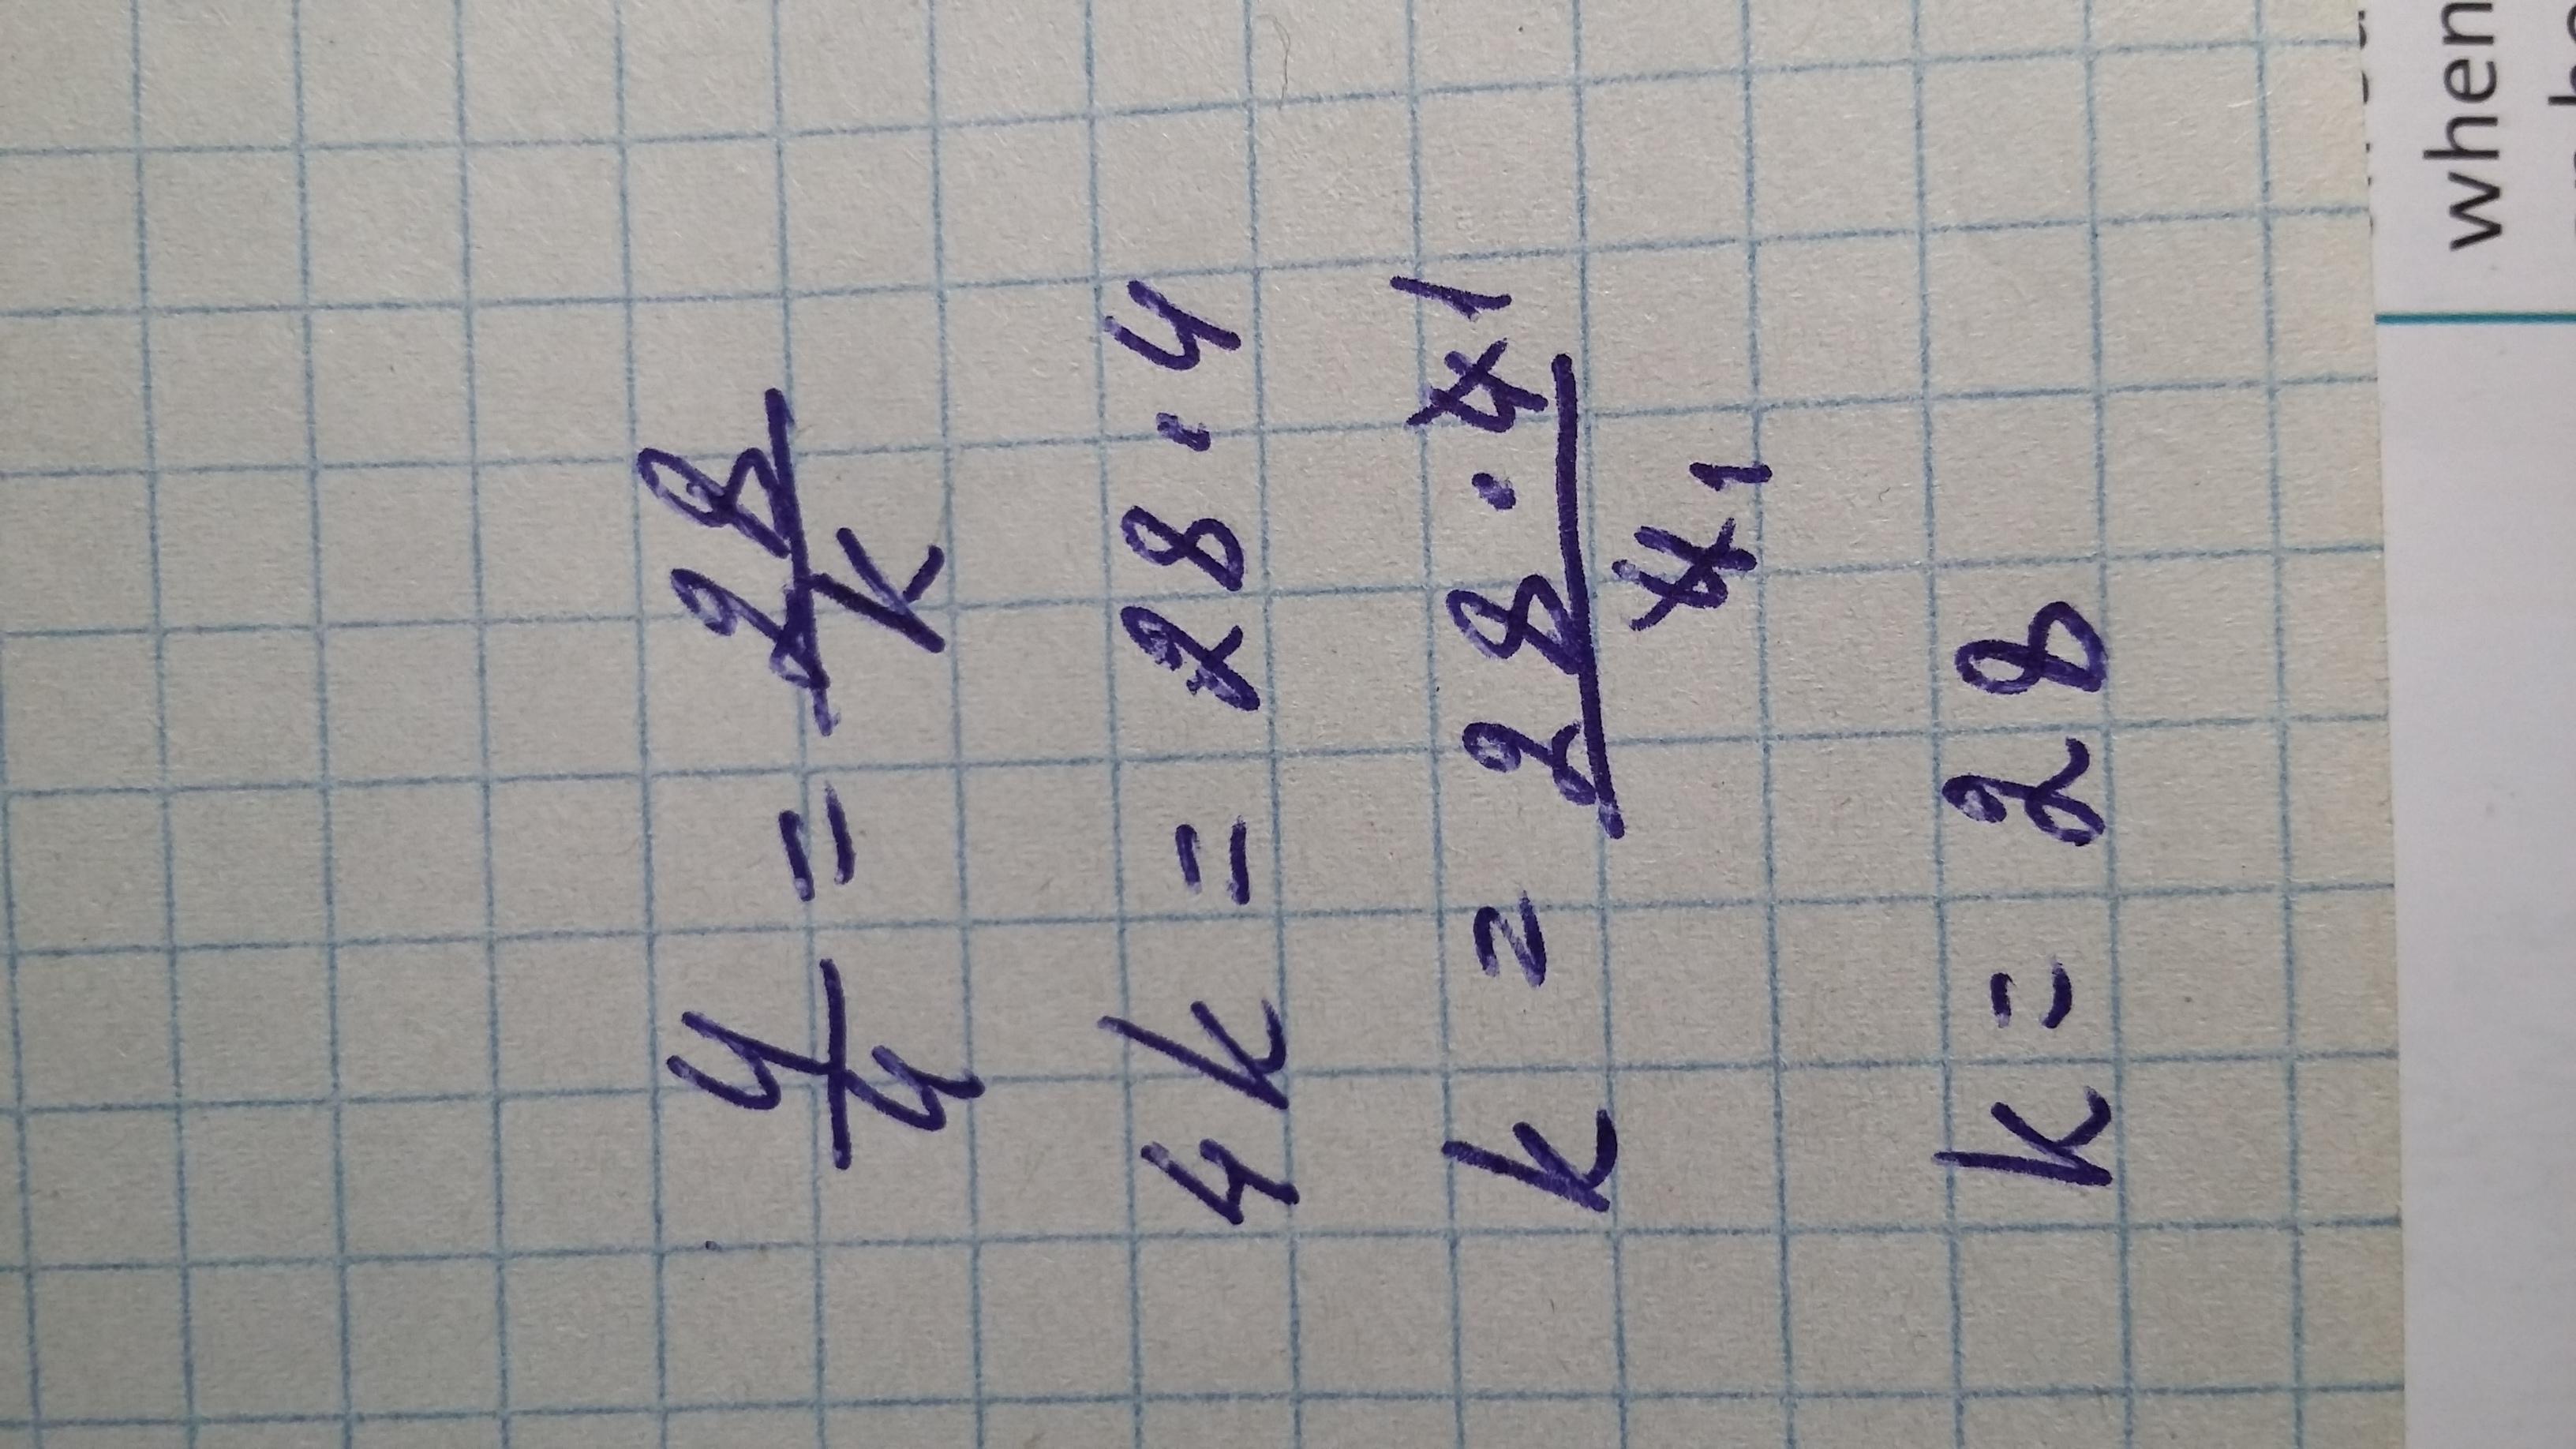 4/4 = 28/k
4k = 28 · 4
k = 28 · 4 1 / 4 1
k = 28
when